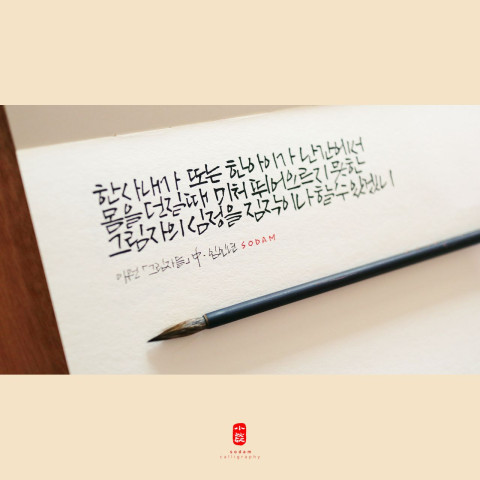 한 사내가 또는 한 아이가 난간에서
몸을 던질 때 미처 뛰어오르지 못한
그림자의 심정을 짐작이나 할 수 있겠니
中 · SODAM
sodam
calligraphy